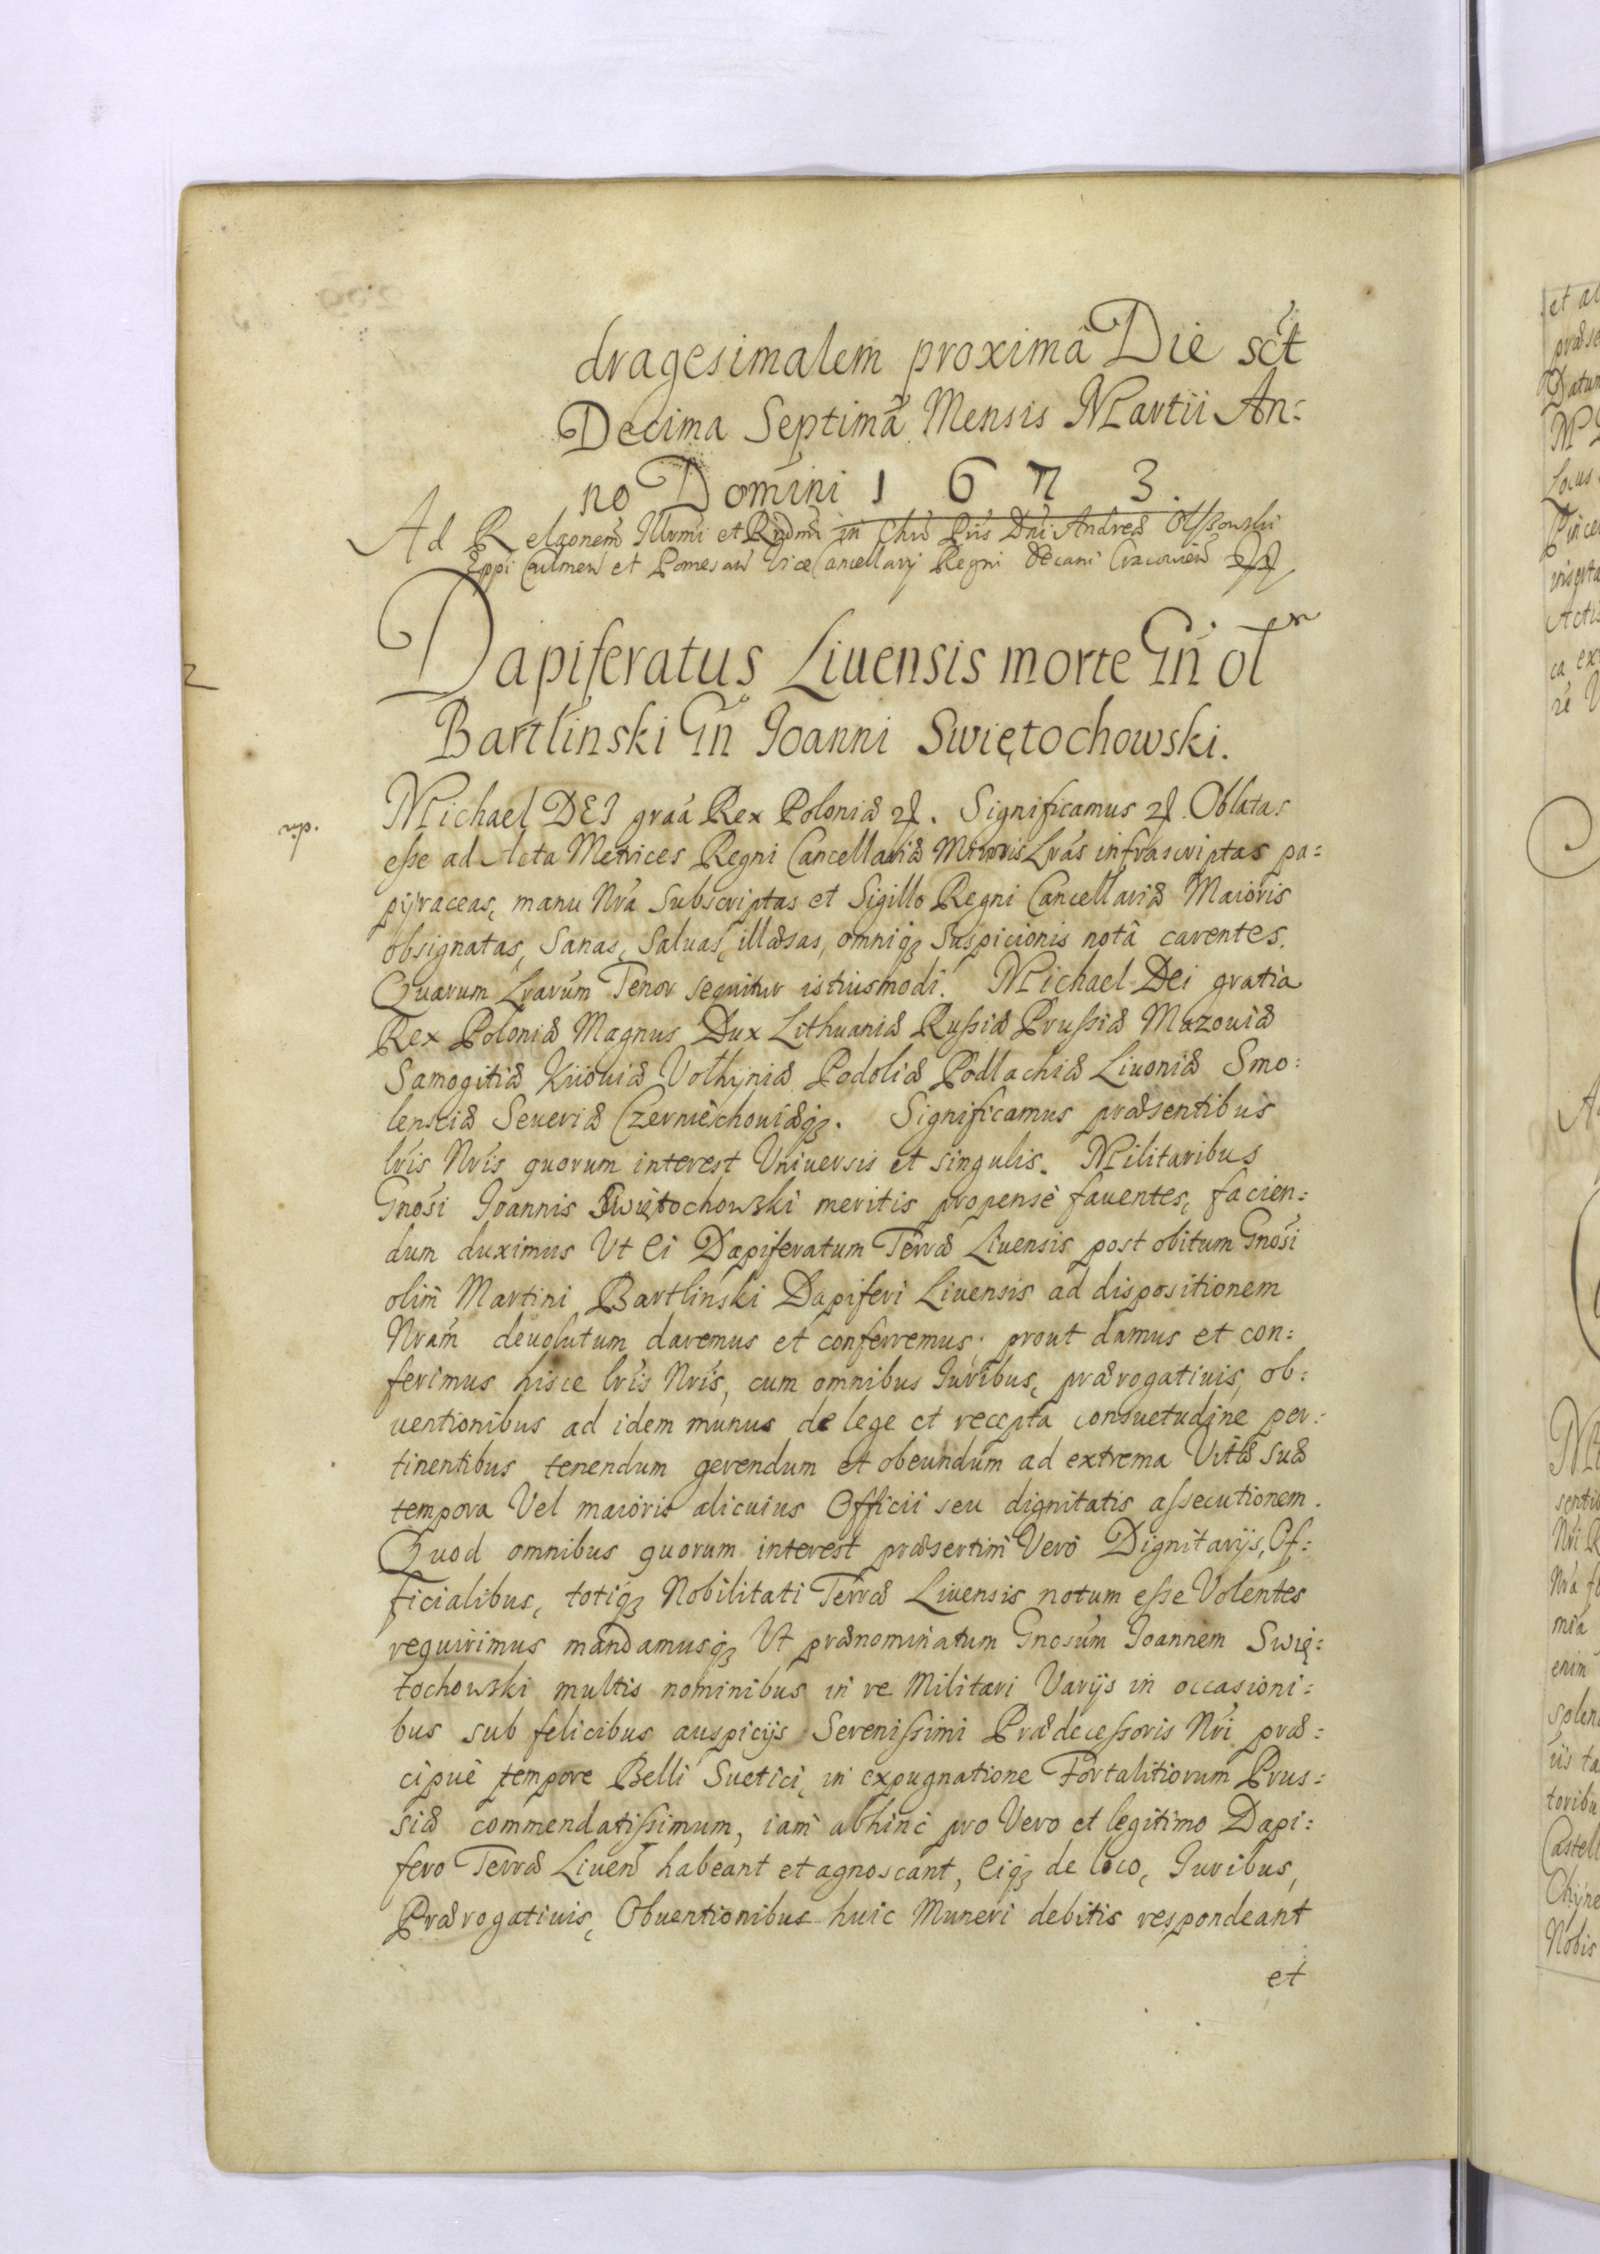 dragesimalem proximâ Die sct
Decima Septimâ Mensis Martii An:
no Domini 1 6 7 3.
Ad Relaonem Illrmi et Rndmi in Chro Pris Dni Andreæ Olszowski
Eppi Culmen et Pomesan Vice Cancellarij Regni Decani Cracovien
Dapiferatus Liuensis morte Gn ol
Bartlinski Gn Joanni Swiętochowski.
Michael DEI graâ Rex Poloniæ &. Significamus &. Oblatas
esse ad Acta Metrices Regni Cancellariæ Lras infrascriptas pa:
pijraceas, manu Nra Subscriptas et Sigillo Regni Cancellariæ Maioris
obsignatas, Sanas, Saluas, illæsas, omniq3 Suspicionis notâ carentes.
Quarum Lrarum Tenor sequitur istiusmodi. Michael Dei gratia
Rex Poloniæ Magnus Dux Lithuaniæ Russiæ Prussiæ Mazouiæ
Samogitiæ Kiiouiæ Volhijniæ Podoliæ Podlachiæ Liuoniæ Smo:
lensciæ Seueriæ Czerniechouiæq3. Significamus præsentibus
lris Nris quorum interest Vniuersis et singulis. Militaribus
Gnosi Joannis Swiętochowski meritis propensè fauentes, facien:
dum duximus Vt Ei Dapiferatum Terræ Liuensis post obitum Gnosi
olim Martini Bartlinski Dapiferi Liuensis ad dispositionem
Nram deuolutum daremus et conferremus; prout damus et con:
ferimus hisce lris Nris, cum omnibus Juribus, prærogatiuis, ob:
uentionibus ad idem munus de lege et recepta consuetudine per:
tinentibus tenendum gerendum et obeundum ad extrema Vitæ suæ
tempora Vel maioris alicuius Officii seu dignitatis assecutionem.
Quod omnibus quorum interest præsertim Vero Dignitarijs, Of:
ficialibus, totiq3 Nobilitati Terræ Liuensis notum esse Volentes
requirimus mandamusq3 Vt prænominatum Gnosum Joannem Swię:
tochowski multis nominibus in re Militari Varijs in occasioni:
bus sub felicibus auspicijs Serenissimi Prædecessoris Nri præ:
cipuè tempore Belli Suetici, in expugnatione Fortalitiorum Prus:
siæ commendatissimum, iam abhinc pro Vero et legitimo Dapi:
fero Terræ Liuen habeant et agnoscant, Eiq3 de loco, Juribus,
Prærogatiuis, Obuentionibus huic Muneri debitis respondeant
et